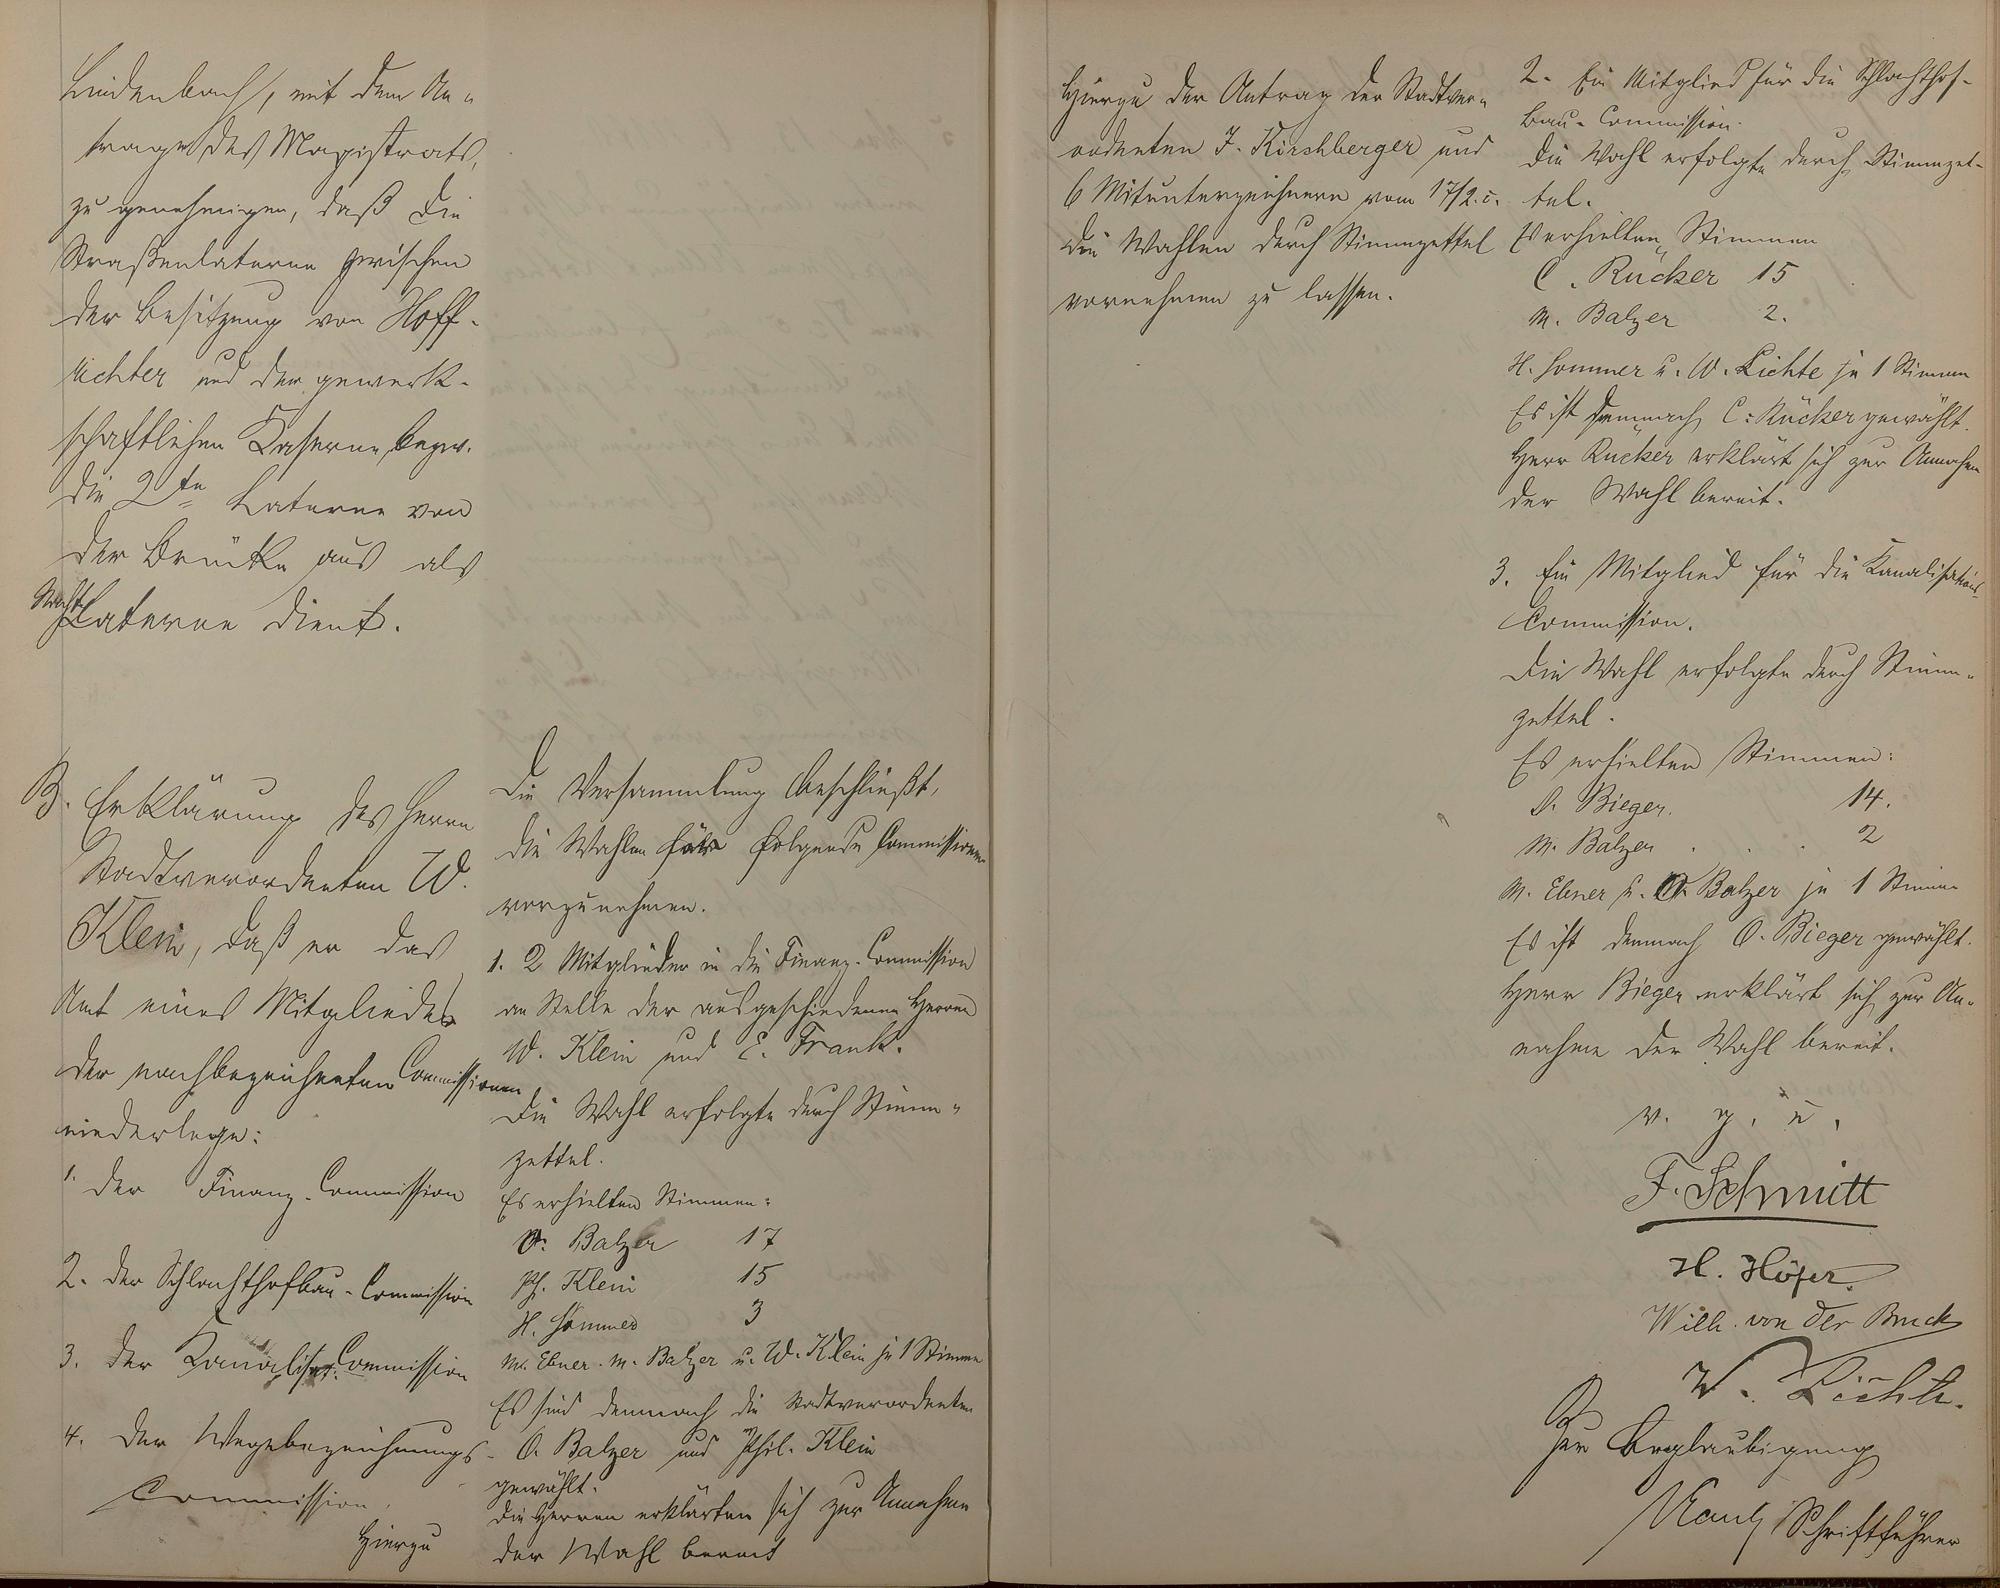 Lindenbach, mit dem An-
trage des Magistrats,
zu genehmigen, daß die
Straßenlaterne zwischen
der Besitzung von Hoff-
richter und der gewerk-
schaftlichen Kaserne, bezw.
die 2te Laterne von
der Brücke aus als
Nacht
Laterne dient.
B. Erklärung des Herrn
Stadtverordneten W.
Klein, daß er das
Amt eines Mitgliedes
der nachbezeichneten Commissionen
niederlege:
1. der Finanz-Commission
2. der Schlachthofbau-Commission
3. der Kanalisat. Commission
4. der Wegebezeichnungs-
Commission.
Hierzu
Die Versammlung beschließt,
die Wahlen für folgende Commissionen
vorzunehmen.
1. 2 Mitglieder in die Finanz-Commission
an Stelle der ausgeschiedenen Herren
W. Klein und E. Frank.
Die Wahl erfolgte durch Stimm-
zettel.
Es erhielten Stimmen:
O. Balzer 17
Ph. Klein 15
H. Sommer 3
M. Ebner. M. Balzer u. W. Klein je 1 Stimme
Es sind demnach die Stadtverordneten
O. Balzer und Phil. Klein
gewählt.
Die Herren erklärten sich zur Annahme
der Wahl bereit
Hierzu der Antrag der Stadtver-
ordneten J. Kirshberger und
6 Mitunterzeichnern vom 17/2. c.
die Wahlen durch Stimmzettel
vornehmen zu lassen.
2. Ein Mitglied für die Schlachthof-
Bau-Commission.
Die Wahl erfolgte durch Stimmzet-
tel.
Es erhielten Stimmen
C. Rücker 15
M. Balzer 2.
H. Sommer u. W. Lichte je 1 Stimme
Es ist demnach C. Rücker gewählt.
Herr Rücker erklärt sich zur Annahme
der Wahl bereit.
3. Ein Mitglied für die Kanalisations-
Commission.
Die Wahl erfolgte durch Stimm-
zettel.
Es erhielten Stimmen:
O. Bieger. 14.
M. Balzer . . . 2
M. Ebner u. O. Balzer je 1 Stimme
Es ist demnach O. Bieger gewählt.
Herr Bieger erklärt sich zur An-
nahme der Wahl bereit.
v. g. u.
F. Schmitt
H. Höfer.
Wilh. von der Bruck
W. Lichte.
Zur Beglaubigung
Schriftführer